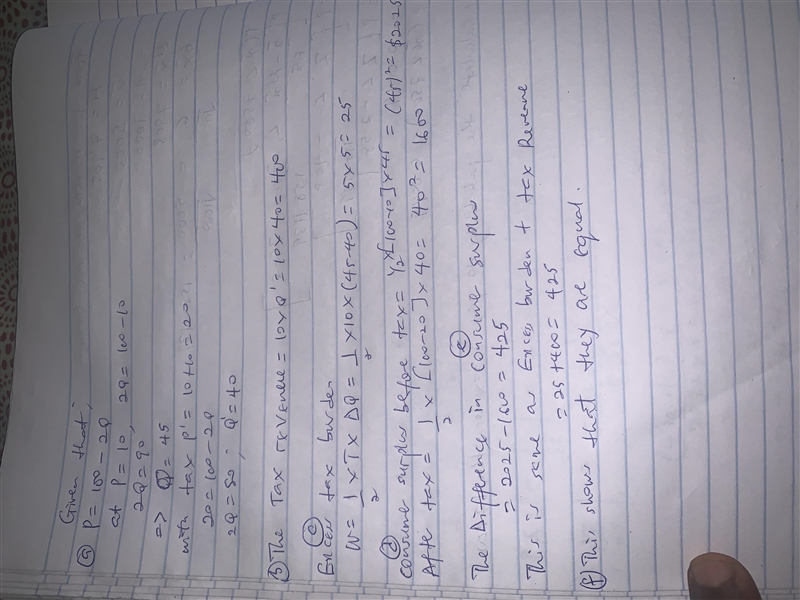 Given that,
(a) P = 100 - 2Q
at P = 10, 2Q = 100 - 10
2Q = 90
=> Q = 45
with tax P' = 10 + 10 = 20
20 = 100 - 2Q
2Q = 80; Q' = 40
(b) The Tax revenue = 10 x Q' = 10 x 40 = 400
(c)
Excess tax burden
W = 1/2 x T x ΔQ = 1/2 x 10 x (45-40) = 5 x 5 = 25
(d)
Consumer surplus before tax = 1/2 x [100-10] x 45 = (45)² = $2025
After tax = 1/2 x [100-20] x 40 = 40² = 1600
(e)
The Difference in Consumer surplus
= 2025 - 1600 = 425
This is same as Excess burden + tax Revenue
= 25 + 400 = 425
(f) This shows that they are equal.